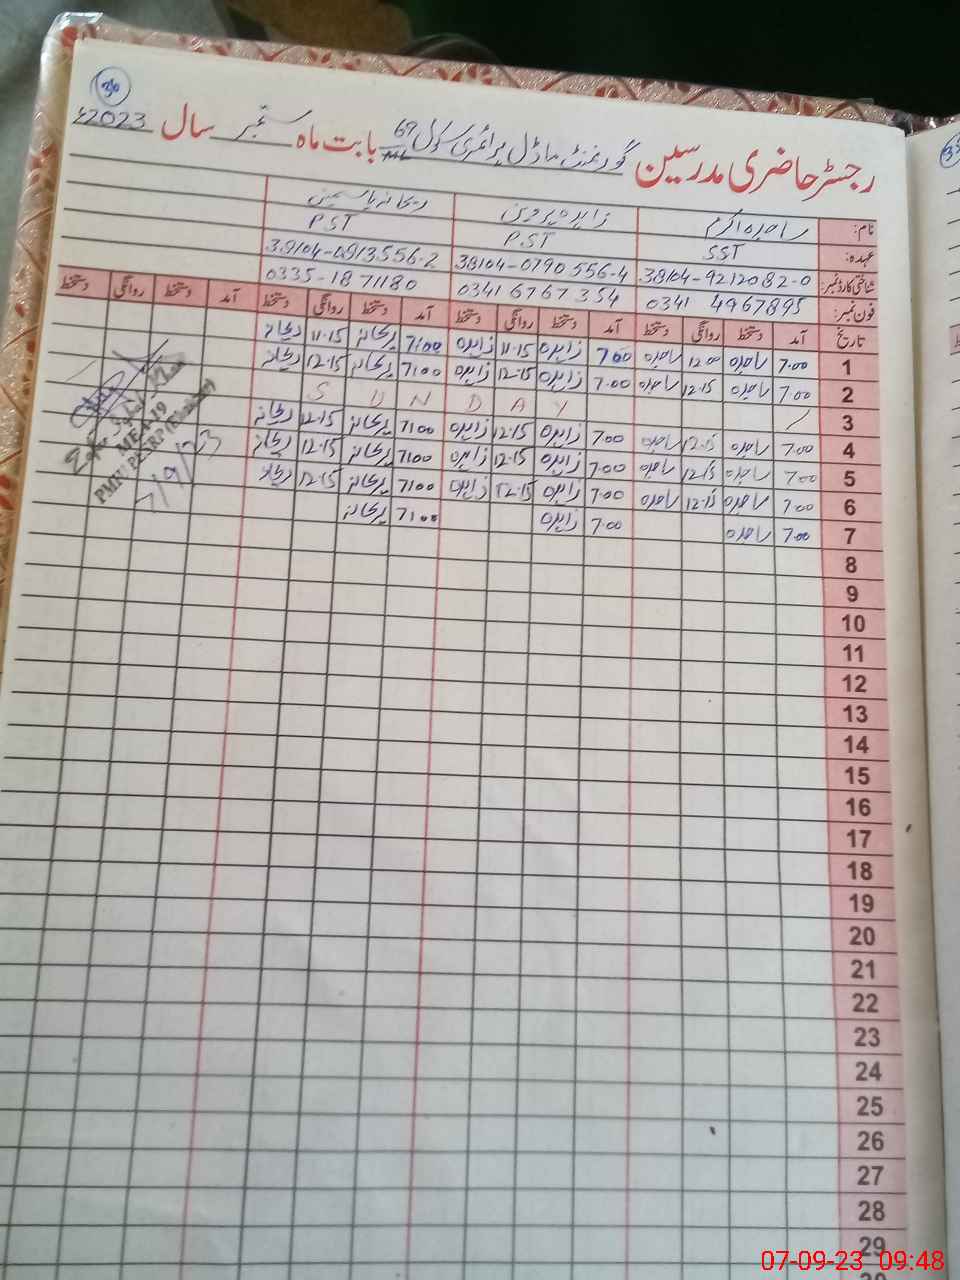 36
رجسٹر حاضری مدرسین گورنمنٹ ماڈل پرائمری سکول 67 ML بابت ماہ ستمبر سال 2023ء
نام: ساجدہ اکرم زاہدہ پروین ریحانہ یاسمین
عہدہ: SST PST PST
شناختی کارڈ نمبر: 38104-9212082-0 38104-0790556-4 38104-0913556-2
فون نمبر: 0341 4967895 0341 6767354 0335-1871180
تاریخ آمد دستخط روانگی دستخط آمد دستخط روانگی دستخط آمد دستخط روانگی دستخط آمد دستخط روانگی دستخط
1 7.00 ساجدہ 12.00 ساجدہ 7.00 زاہدہ 11.15 زاہدہ 7:00 ریحانہ 11.15 ریحانہ
2 7.00 ساجدہ 12.15 ساجدہ 7.00 زاہدہ 12.15 زاہدہ 7:00 ریحانہ 12.15 ریحانہ
3 S U N D A Y
4 7.00 ساجدہ 12.15 ساجدہ 7.00 زاہدہ 12.15 زاہدہ 7:00 ریحانہ 12.15 ریحانہ
5 7.00 ساجدہ 12.15 ساجدہ 7.00 زاہدہ 12.15 زاہدہ 7:00 ریحانہ 12.15 ریحانہ
6 7.00 ساجدہ 12.15 ساجدہ 7.00 زاہدہ 12.15 زاہدہ 7:00 ریحانہ 12.15 ریحانہ
7 7.00 ساجدہ 7.00 زاہدہ 7:00 ریحانہ
8
9
10
11
12
13
14
15
16
17
18
19
20
21
22
23
24
25
26
27
28
29
30
Khan
MEA-19
PMIU PESRP
7/9/23
07-09-23 09:48